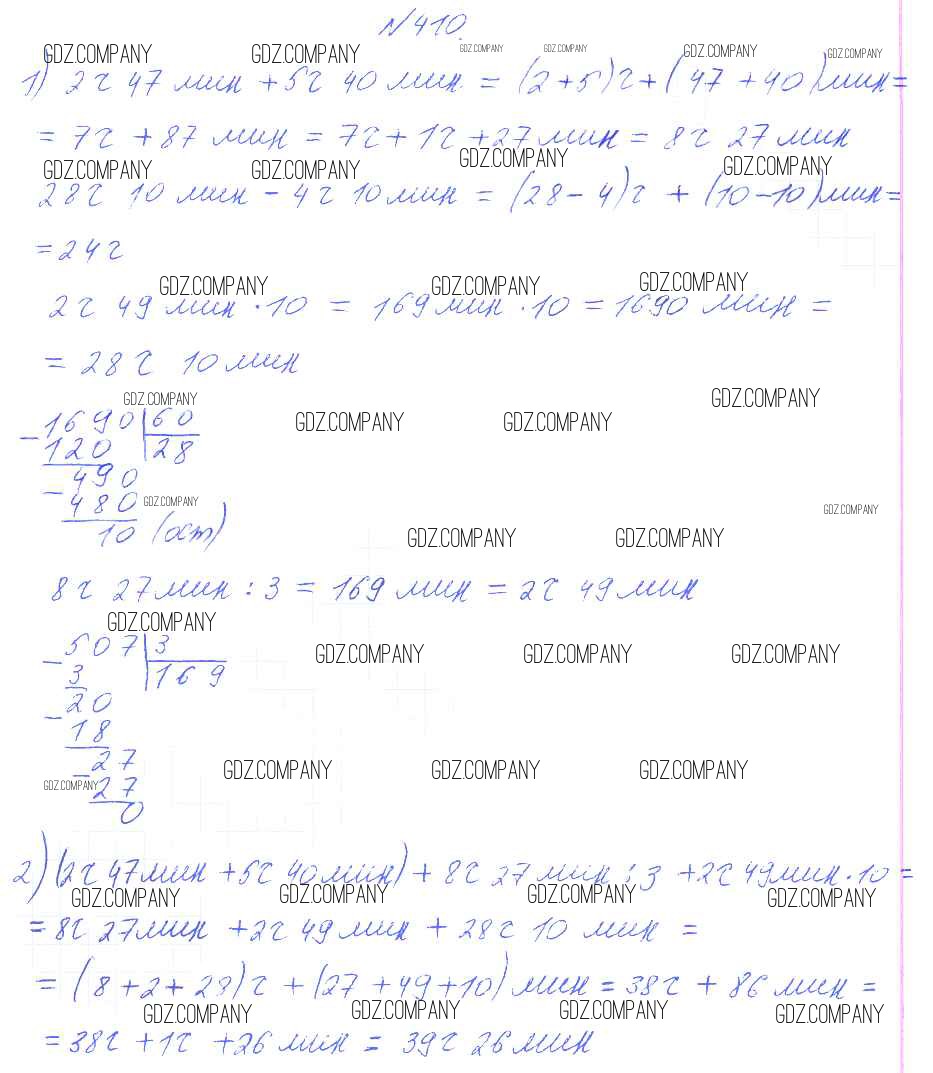 №410.
GDZ.COMPANY GDZ.COMPANY GDZ.COMPANY GDZ.COMPANY GDZ.COMPANY GDZ.COMPANY
1) 2 ч 47 мин + 5 ч 40 мин = (2+5) ч + (47 + 40) мин =
= 7 ч + 87 мин = 7 ч + 1 ч + 27 мин = 8 ч 27 мин
GDZ.COMPANY GDZ.COMPANY GDZ.COMPANY GDZ.COMPANY
28 ч 10 мин - 4 ч 10 мин = (28 - 4) ч + (10 - 10) мин =
= 24 ч
GDZ.COMPANY GDZ.COMPANY GDZ.COMPANY
2 ч 49 мин · 10 = 169 мин · 10 = 1690 мин =
= 28 ч 10 мин
GDZ.COMPANY GDZ.COMPANY GDZ.COMPANY GDZ.COMPANY
1690 60
- 120 28
490
- 480 GDZ.COMPANY GDZ.COMPANY
10 (ост)
GDZ.COMPANY GDZ.COMPANY
8 ч 27 мин : 3 = 169 мин = 2 ч 49 мин
GDZ.COMPANY
507 3
GDZ.COMPANY GDZ.COMPANY GDZ.COMPANY
- 3 169
20
- 18
27
GDZ.COMPANY GDZ.COMPANY GDZ.COMPANY
GDZ.COMPANY - 27
0
2) (2 ч 47 мин + 5 ч 40 мин) + 8 ч 27 мин : 3 + 2 ч 49 мин · 10 =
GDZ.COMPANY GDZ.COMPANY GDZ.COMPANY GDZ.COMPANY
= 8 ч 27 мин + 2 ч 49 мин + 28 ч 10 мин =
= (8 + 2 + 28) ч + (27 + 49 + 10) мин = 38 ч + 86 мин =
GDZ.COMPANY GDZ.COMPANY GDZ.COMPANY GDZ.COMPANY
= 38 ч + 1 ч + 26 мин = 39 ч 26 мин